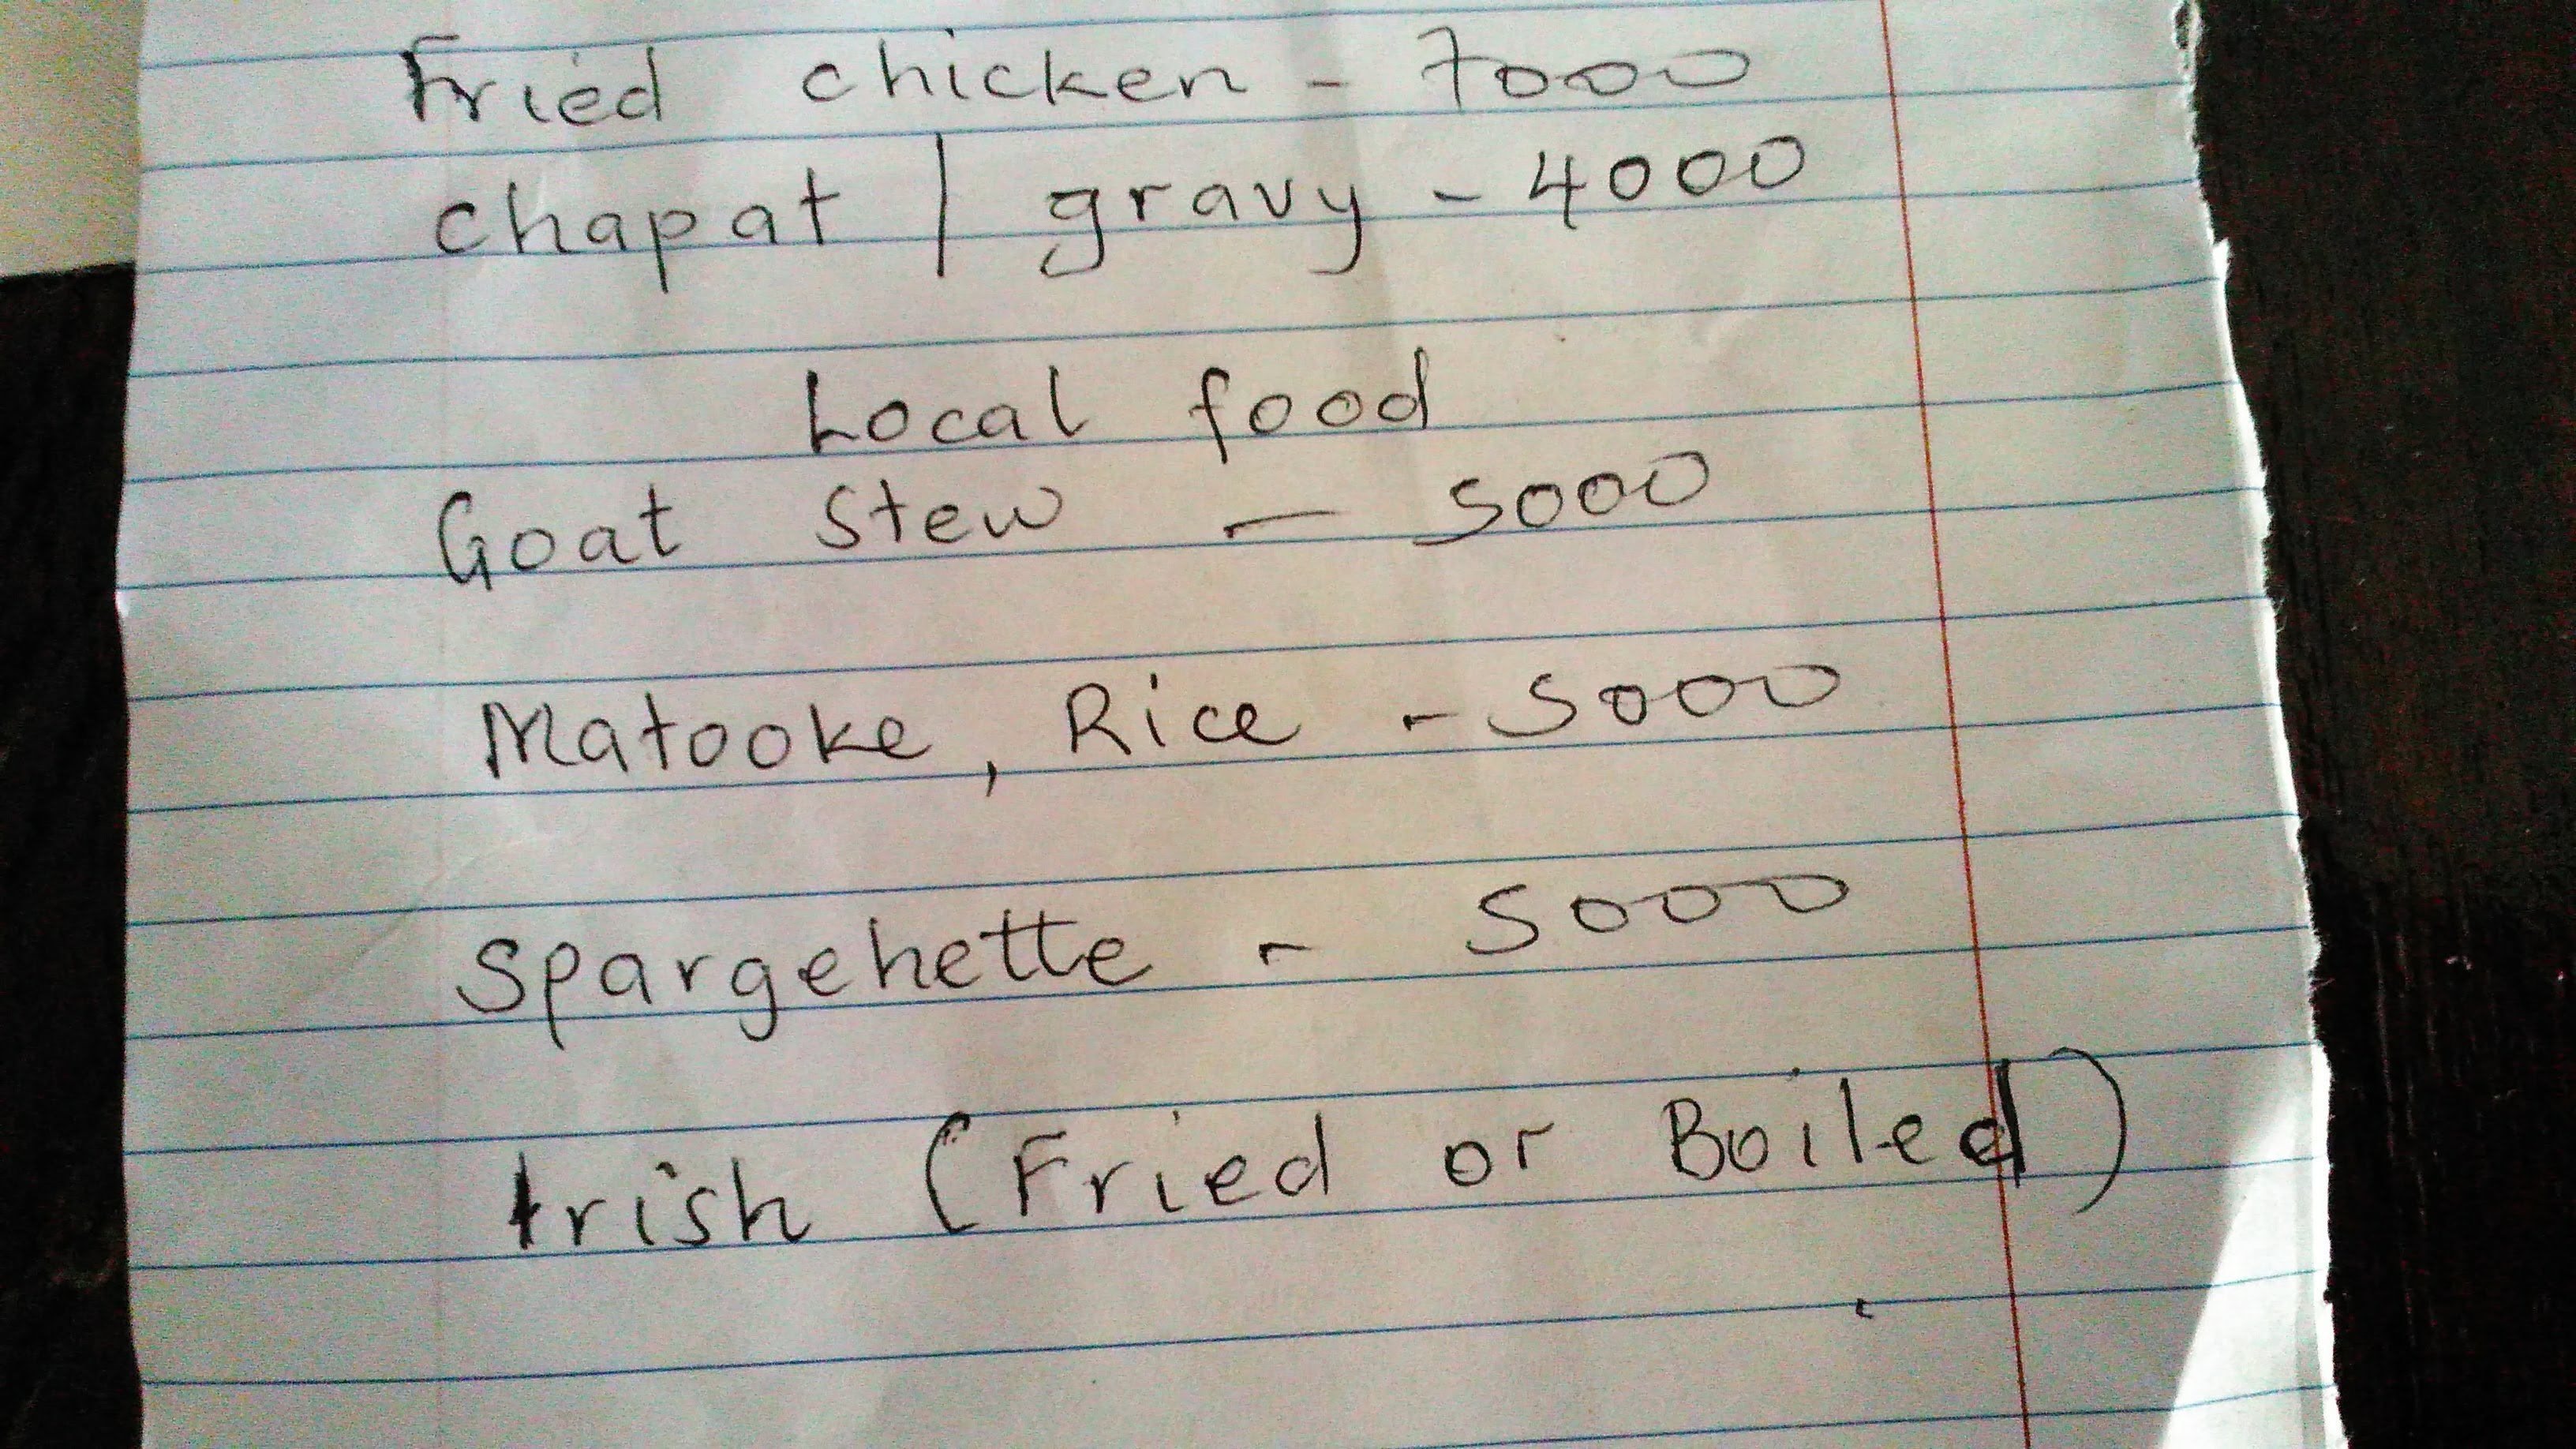 Fried chicken - 7000
chapat / gravy - 4000
Local food
Goat Stew - 5000
Matooke, Rice - 5000
Spargehette - 5000
Irish (Fried or Boiled)